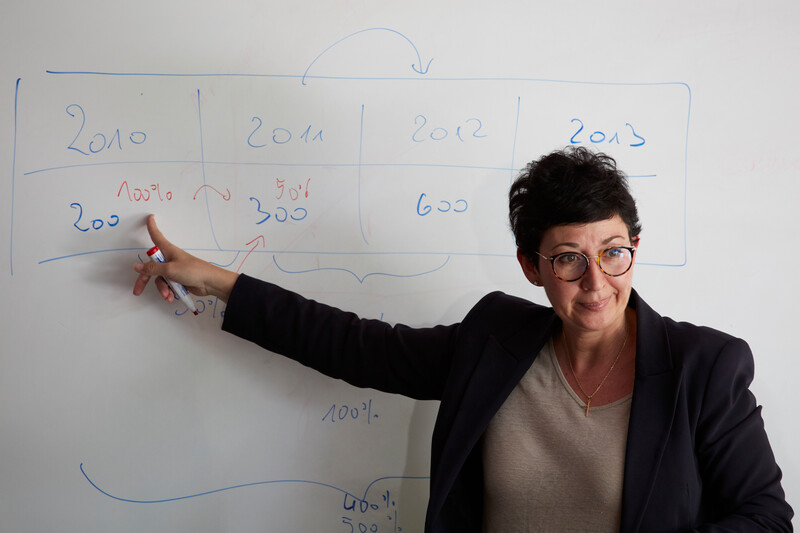 2010 2011 2012 2013
100% 50%
200 300 600
100%
400%
500%